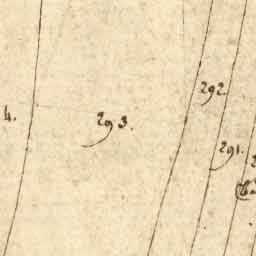 292.
4.
293.
291.